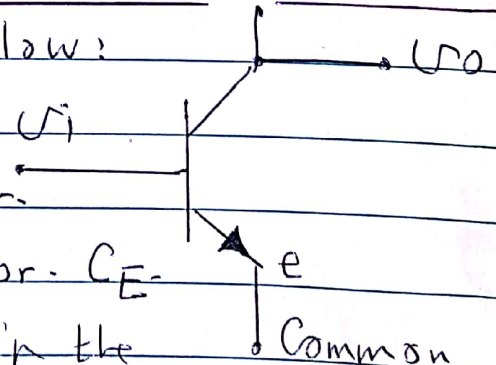 low:
Vo
Vi
r.
or. CE-
e
in the
Common